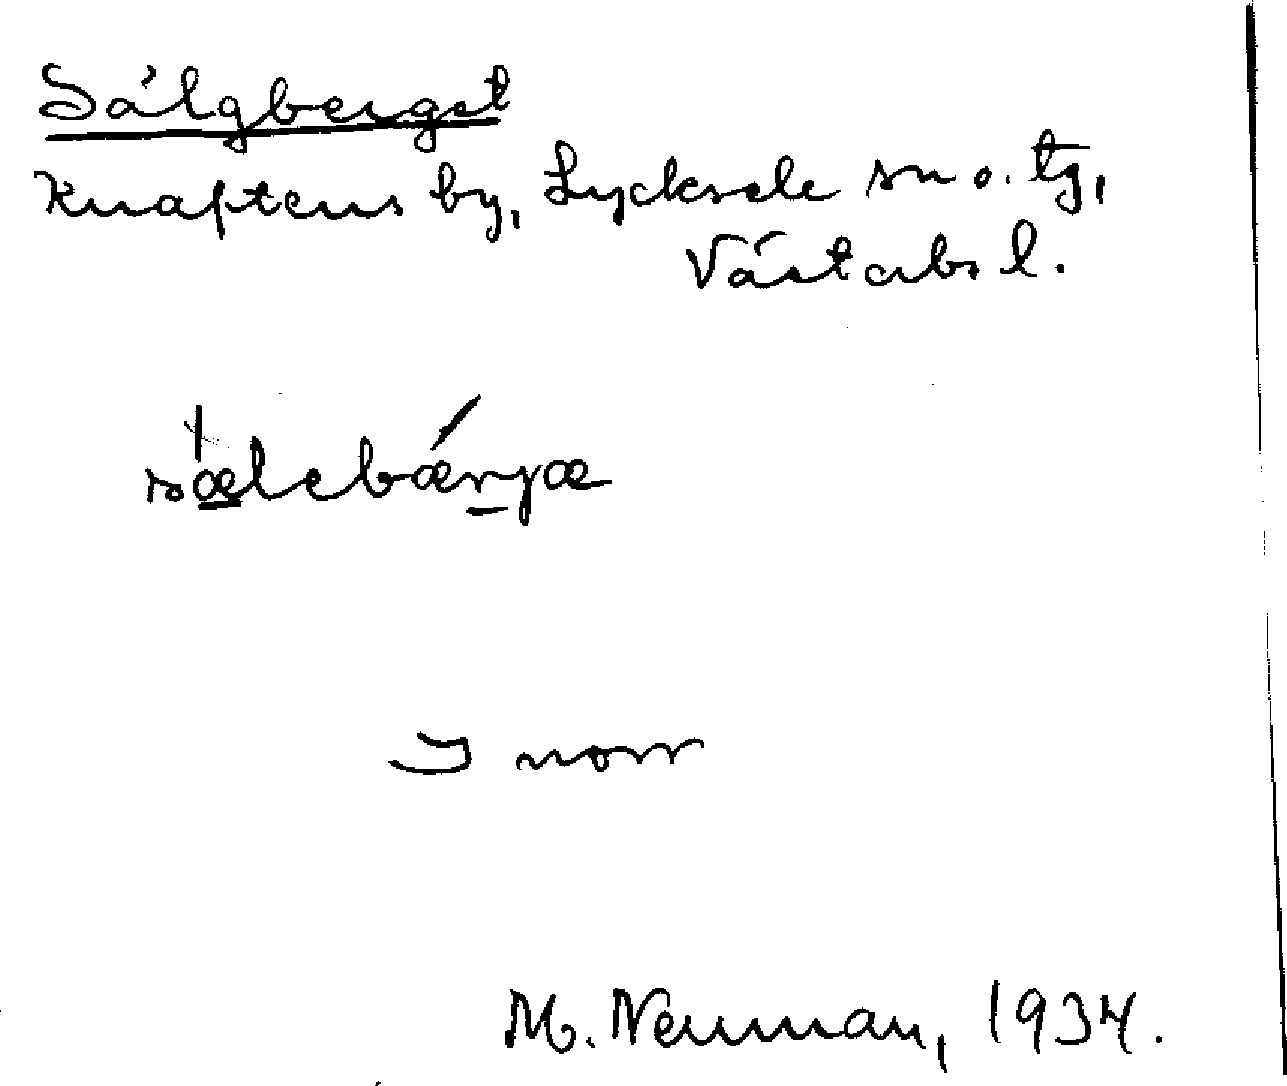 Sälgberget
Knaftens by, Lycksele sn o. tg,
Västerbs l.
sælebærjæ
I norr
M. Neuman, 1934.